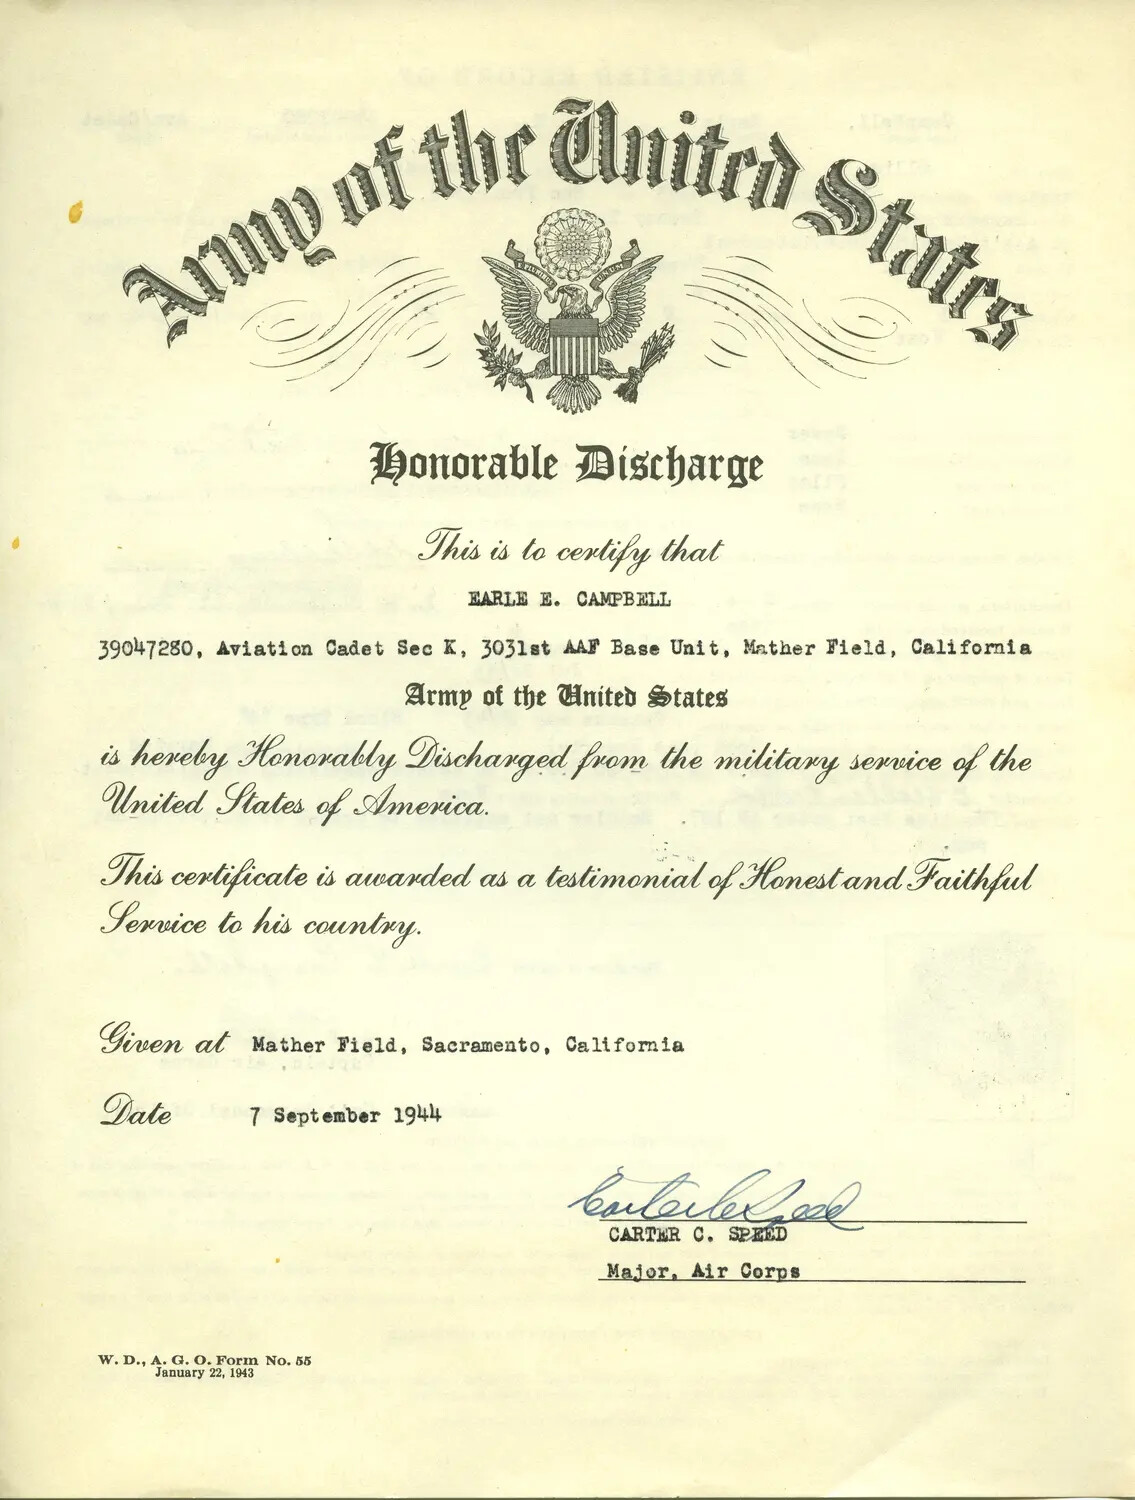 Army of the United States
E PLURIBUS UNUM
Honorable Discharge
This is to certify that
EARLE E. CAMPBELL
39047280, Aviation Cadet Sec K, 3031st AAF Base Unit, Mather Field, California
Army of the United States
is hereby Honorably Discharged from the military service of the
United States of America.
This certificate is awarded as a testimonial of Honest and Faithful
Service to his country.
Given at Mather Field, Sacramento, California
Date 7 September 1944
Carter C Speed
CARTER C. SPEED
Major, Air Corps
W. D., A. G. O. Form No. 55
January 22, 1943